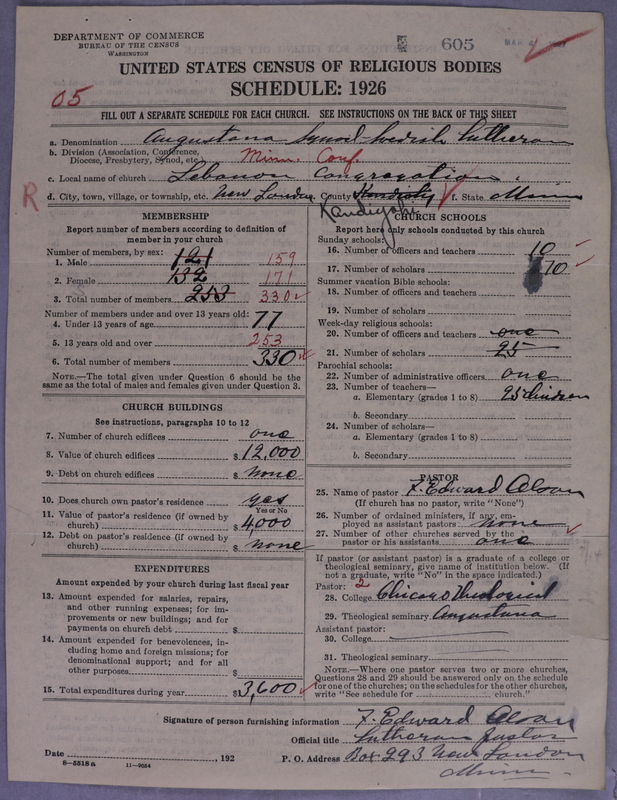 DEPARTMENT OF COMMERCE
BUREAU OF THE CENSUS
WASHINGTON
605
UNITED STATES CENSUS OF RELIGIOUS BODIES
SCHEDULE: 1926
05
FILL OUT A SEPARATE SCHEDULE FOR EACH CHURCH. SEE INSTRUCTIONS ON THE BACK OF THIS SHEET
a. Denomination Augustana Synod Swedish Lutheran
b. Division (Association, Conference, Diocese, Presbytery, Synod, etc.) Minn. Conf.
c. Local name of church Lebanon Congregation.
R
d. City, town, village, or township, etc. New London County Kandiyohi f. State Minn
MEMBERSHIP
Report number of members according to definition of member in your church
Number of members, by sex:
1. Male 121 159
2. Female 132 171
3. Total number of members 253 330
Number of members under and over 13 years old:
4. Under 13 years of age 77
5. 13 years old and over 253
6. Total number of members 330
NOTE.—The total given under Question 6 should be the same as the total of males and females given under Question 3.
CHURCH BUILDINGS
See instructions, paragraphs 10 to 12
7. Number of church edifices one
8. Value of church edifices $12,000
9. Debt on church edifices $ none
10. Does church own pastor's residence yes
Yes or No
11. Value of pastor's residence (if owned by church) $4,000
12. Debt on pastor's residence (if owned by church) $ none
EXPENDITURES
Amount expended by your church during last fiscal year
13. Amount expended for salaries, repairs, and other running expenses; for improvements or new buildings; and for payments on church debt $
14. Amount expended for benevolences, including home and foreign missions; for denominational support; and for all other purposes $
15. Total expenditures during year $3,600
CHURCH SCHOOLS
Report here only schools conducted by this church
Sunday schools:
16. Number of officers and teachers 10
17. Number of scholars 70
Summer vacation Bible schools:
18. Number of officers and teachers
19. Number of scholars
Week-day religious schools:
20. Number of officers and teachers one
21. Number of scholars 25
Parochial schools:
22. Number of administrative officers one
23. Number of teachers—
a. Elementary (grades 1 to 8) 25
b. Secondary
24. Number of scholars—
a. Elementary (grades 1 to 8)
b. Secondary
PASTOR
25. Name of pastor F. Edward Olson
(If church has no pastor, write "None")
26. Number of ordained ministers, if any, employed as assistant pastors none
27. Number of other churches served by the pastor or his assistants one
If pastor (or assistant pastor) is a graduate of a college or theological seminary, give name of institution below. (If not a graduate, write "No" in the space indicated.)
Pastor: 2
28. College Chicago Theological
29. Theological seminary Augustana
Assistant pastor:
30. College
31. Theological seminary
NOTE.—Where one pastor serves two or more churches, Questions 28 and 29 should be answered only on the schedule for one of the churches; on the schedules for the other churches, write "See schedule for church."
Signature of person furnishing information F. Edward Olson
Official title Lutheran pastor
Date 192 P. O. Address Box 293 New London
Minn.
8-5518a 11-9654